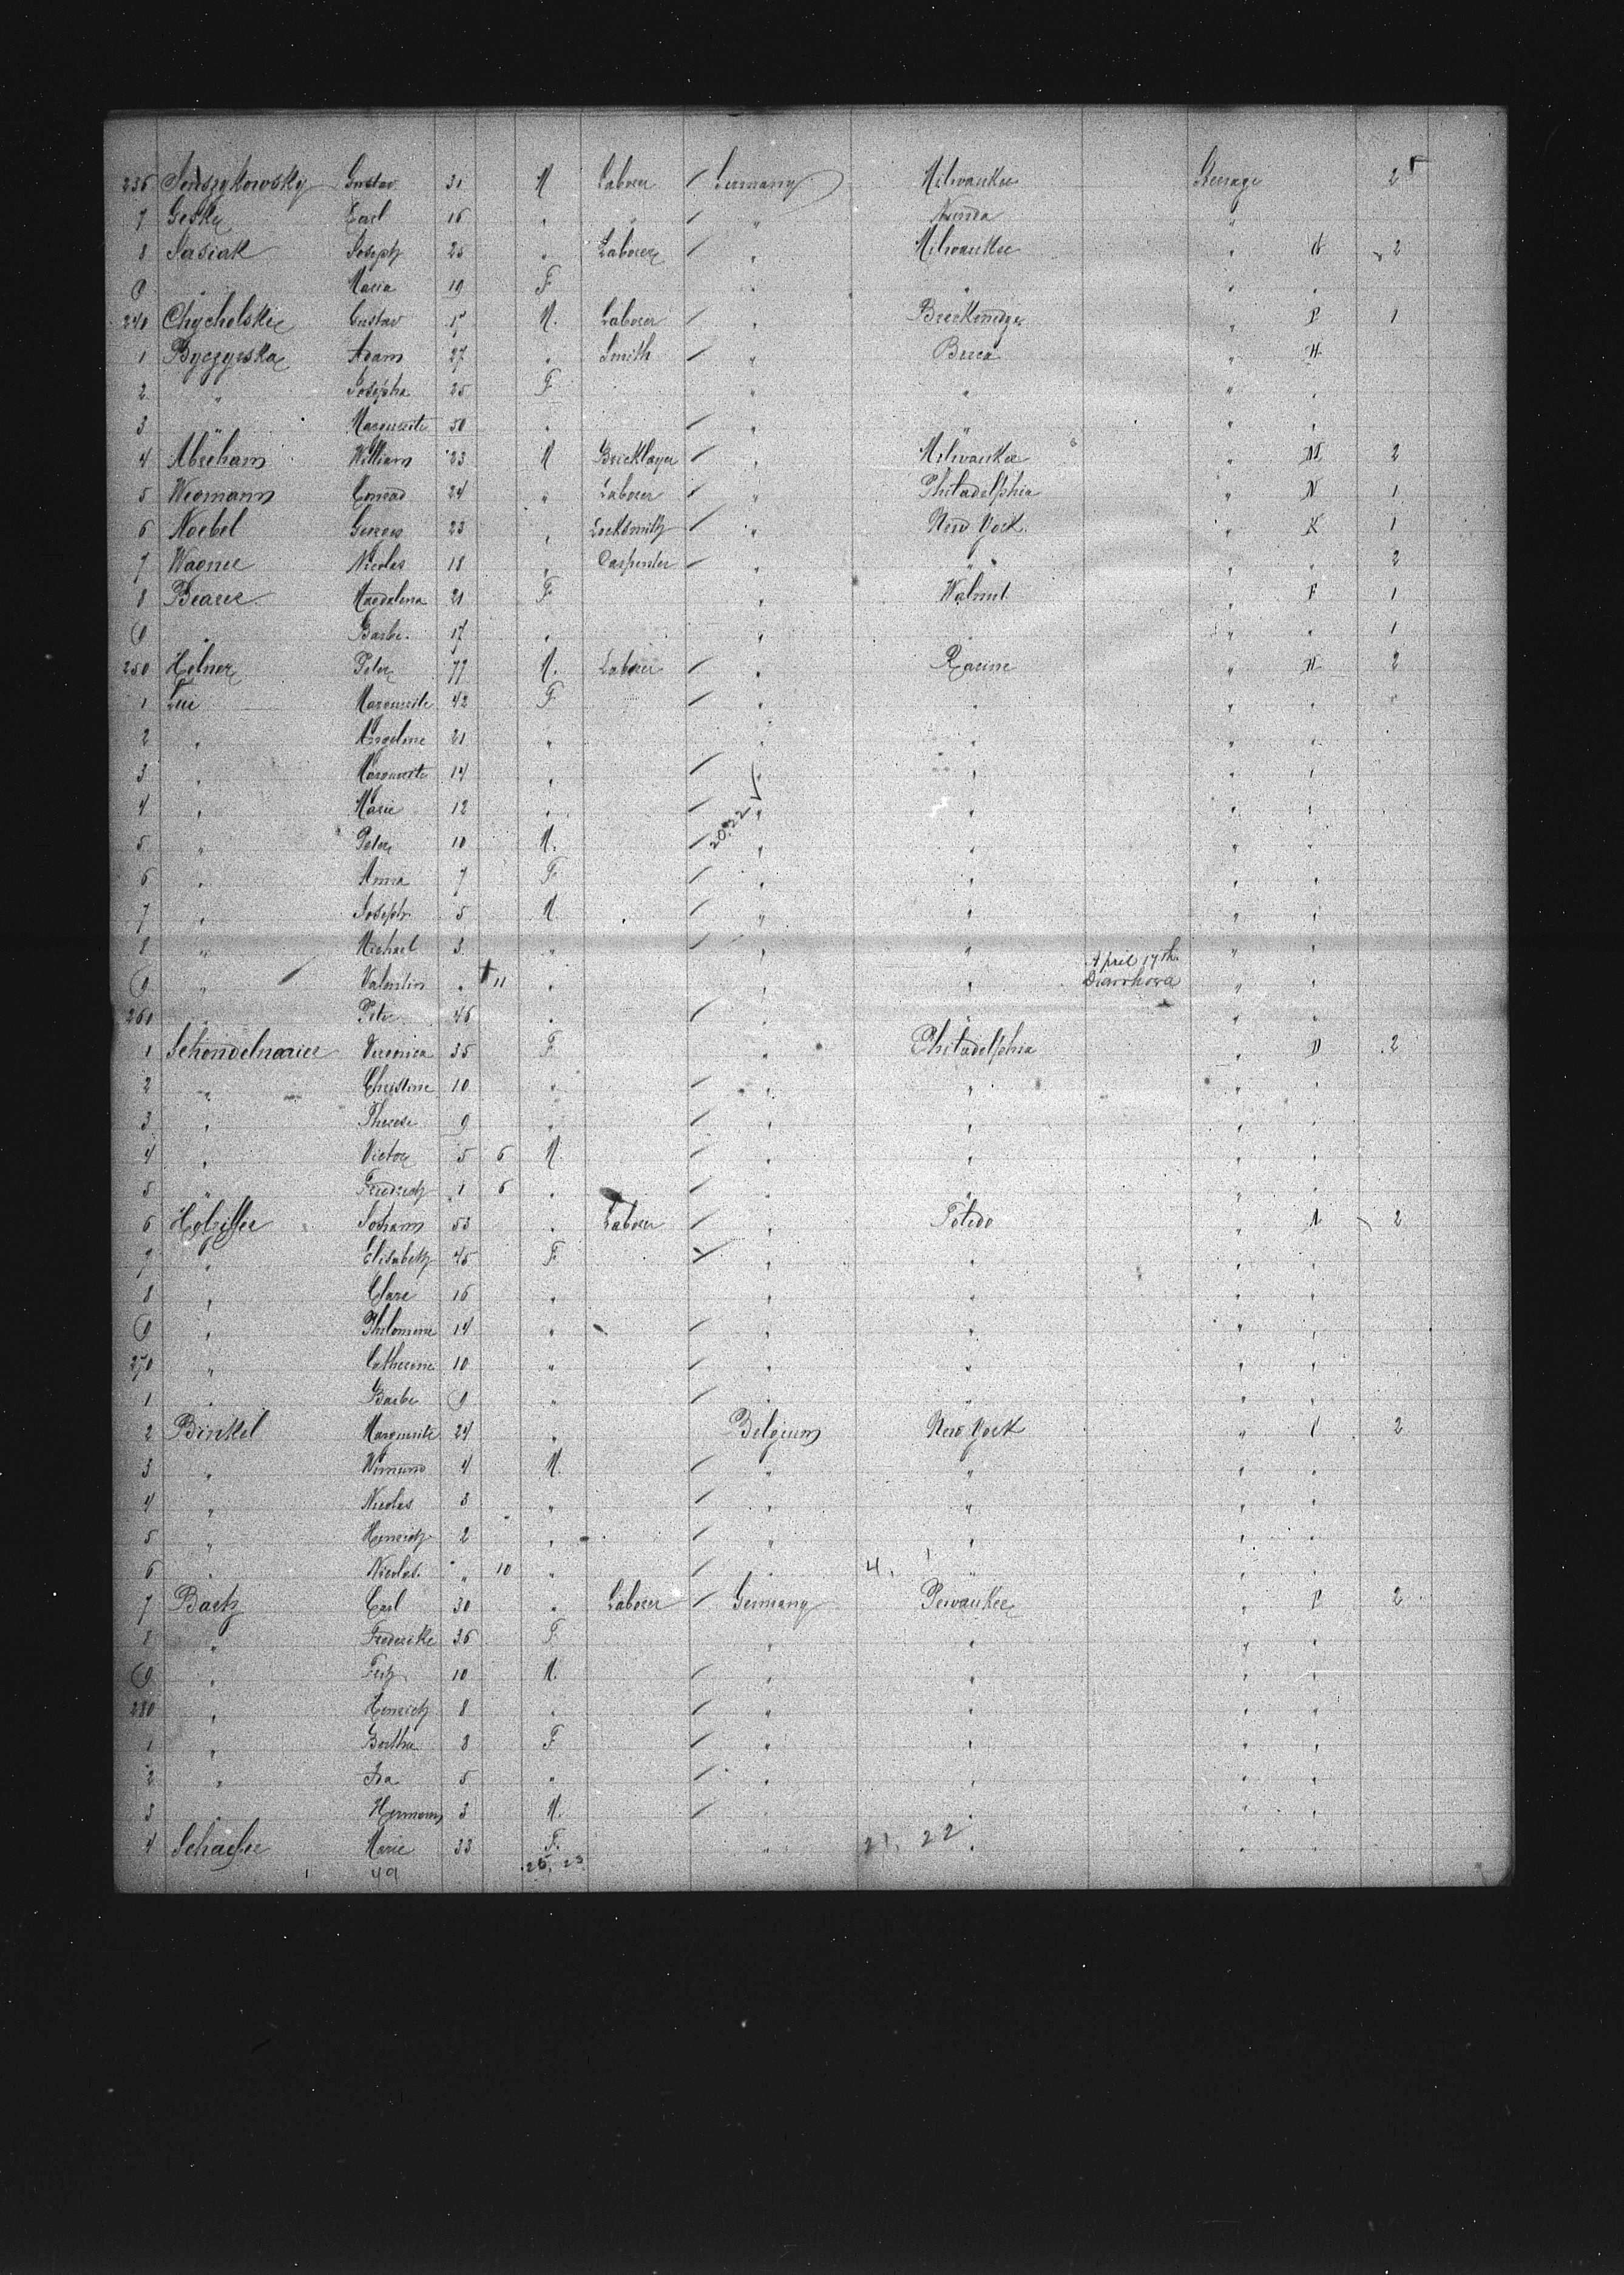 236 Gustav 31 M Laborer / Germany Milwaukee Steerage 2
7 Geske Carl 16 " " / " Nunda "
8 Sasiak Joseph 25 " Laborer / " Milwaukee " N 2
9 " Maria 19 F " " " "
240 Gustav M. Laborer " " P 1
1 Adam 27 " Smith / " Berea " H
2 " Josepha 25 F " " " "
3 " Marguerite 50 " / " " " "
4 Abraham William 23 M Bricklayer / " Milwaukee " M 2
5 Wegmann Conrad 24 " Laborer / " Philadelphia " N 1
6 Noebel Georges 23 " Locksmith / " New York " K 1
7 Wagner Nicolas 18 " Carpenter / " " " " 2
8 Magdalena 21 F " Walnut " P 1
9 " Barbe 17 " " " " 1
250 Peter 77 M. Laborer / " Racine " H 2
1 Marguerite 42 F / " " " "
2 " Angeline 21 " " " " "
3 " Marguerite 14 " / " " " "
4 " Marie 12 " / " " " "
20.22 ✓
5 " Peter 10 M. / " " " "
6 " Anna 7 F. / " " " "
7 " Joseph 5 M / " " " "
8 " Michael 3 " / " " " "
9 " Valentin " † 11 " " " April 17th Diarrhoea " "
260 " Peter 46 " / " " " "
1 Veronica 35 F " Philadelphia " D 2
2 " Christine 10 " / " " " "
3 " Therese 9 " / " " " "
4 " Victor 5 6 M. / " " " "
5 " Friedrich 1 6 " / " " " "
6 Johann 53 " Laborer / " Toledo " N 2
7 " Elisabeth 45 F / " " " "
8 " Clare 16 " " " " "
9 " Philomene 14 " / " " " "
270 " Catherine 10 " / " " " "
1 " Barbe 9 " / " " " "
2 Binkel Marguerite 24 " Belgium New York " 2
3 " 4 M. / " " " "
4 " Nicolas 3 " / " " " "
5 " Heinrich 2 " / " " " "
6 " Nicolas " 10 " / " 4. " " "
7 Bartz Carl 30 " Laborer / Germany Pewaukee " P 2
8 " Frederike 36 F " " " "
9 " Fritz 10 M. / " " " "
280 " Heinrich 8 " / " " " "
1 " Bertha 8 F / " " " "
2 " Ida 5 " / " " " "
3 " Hermann 3 M. / " " " "
4 Schaefer Marie 33 F. " 21, 22 " " "
1 49 26, 23